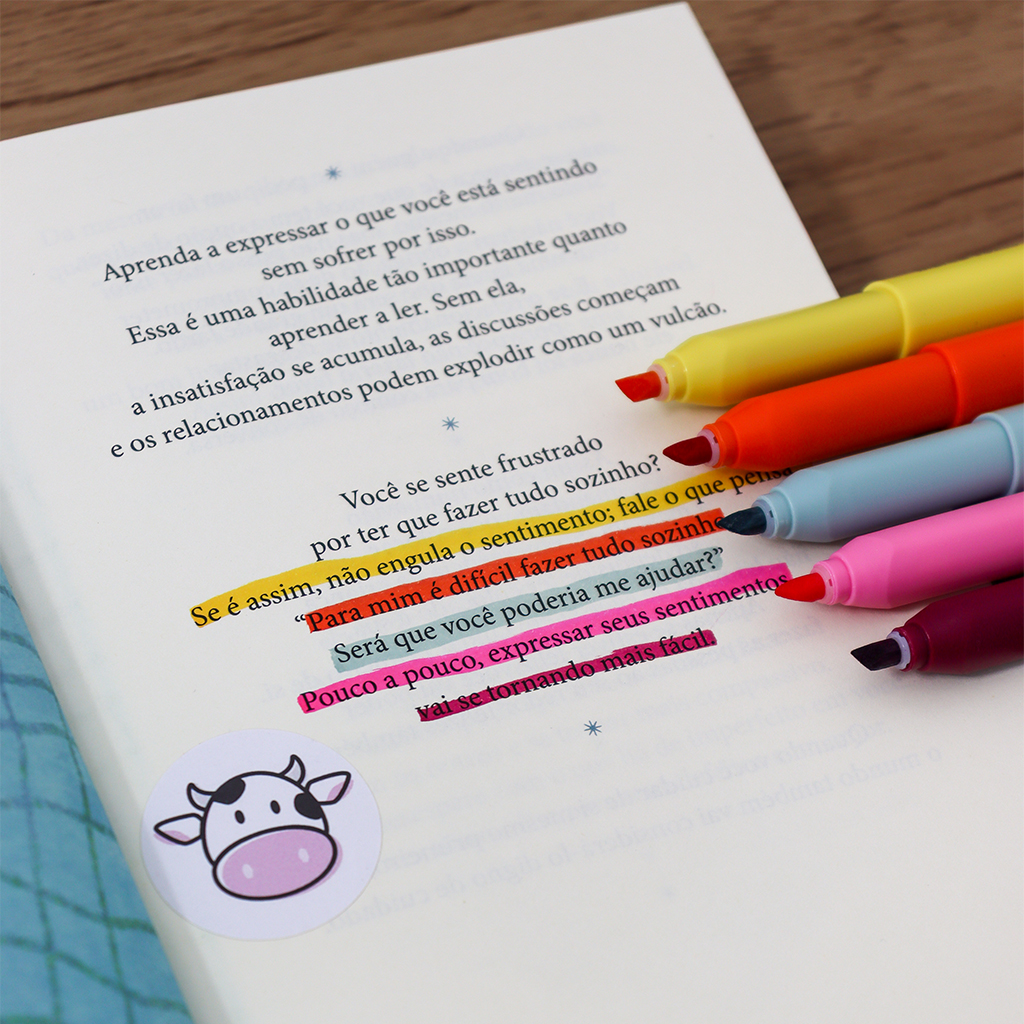 Aprenda a expressar o que você está sentindo
sem sofrer por isso.
Essa é uma habilidade tão importante quanto
aprender a ler. Sem ela,
a insatisfação se acumula, as discussões começam
e os relacionamentos podem explodir como um vulcão.
Você se sente frustrado
por ter que fazer tudo sozinho?
Se é assim, não engula o sentimento; fale o que pensa
“Para mim é difícil fazer tudo sozinho
Será que você poderia me ajudar?”
Pouco a pouco, expressar seus sentimentos
vai se tornando mais fácil.